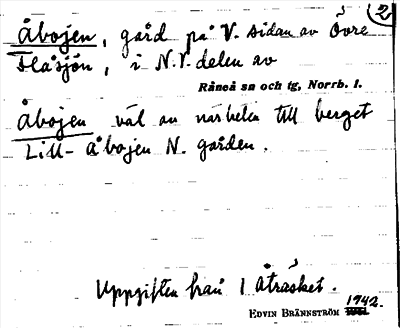 2
Åbojen, gård på V. sidan av Övre
Flåsjön, i N.V. delen av
Råneå sn och tg, Norrb. l.
Åbojen väl av närheten till berget
Lill-Åbojen N. gården.
Uppgiften från 1 Åträsket.
1942.
EDVIN BRÄNNSTRÖM